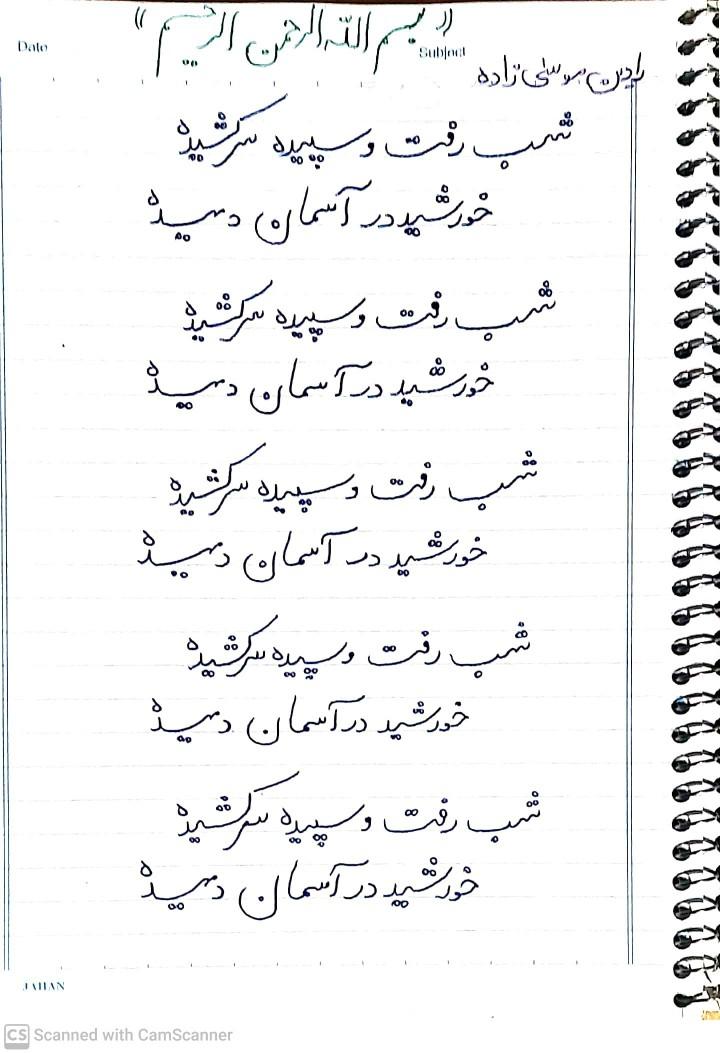 «بسم الله الرحمن الرحیم»
Date
Subject
رادین موسی زاده
شب رفت و سپیده سرکشیده
خورشید در آسمان دمیده
شب رفت و سپیده سرکشیده
خورشید در آسمان دمیده
شب رفت و سپیده سرکشیده
خورشید در آسمان دمیده
شب رفت و سپیده سرکشیده
خورشید در آسمان دمیده
شب رفت و سپیده سرکشیده
خورشید در آسمان دمیده
JAHAN
CS Scanned with CamScanner